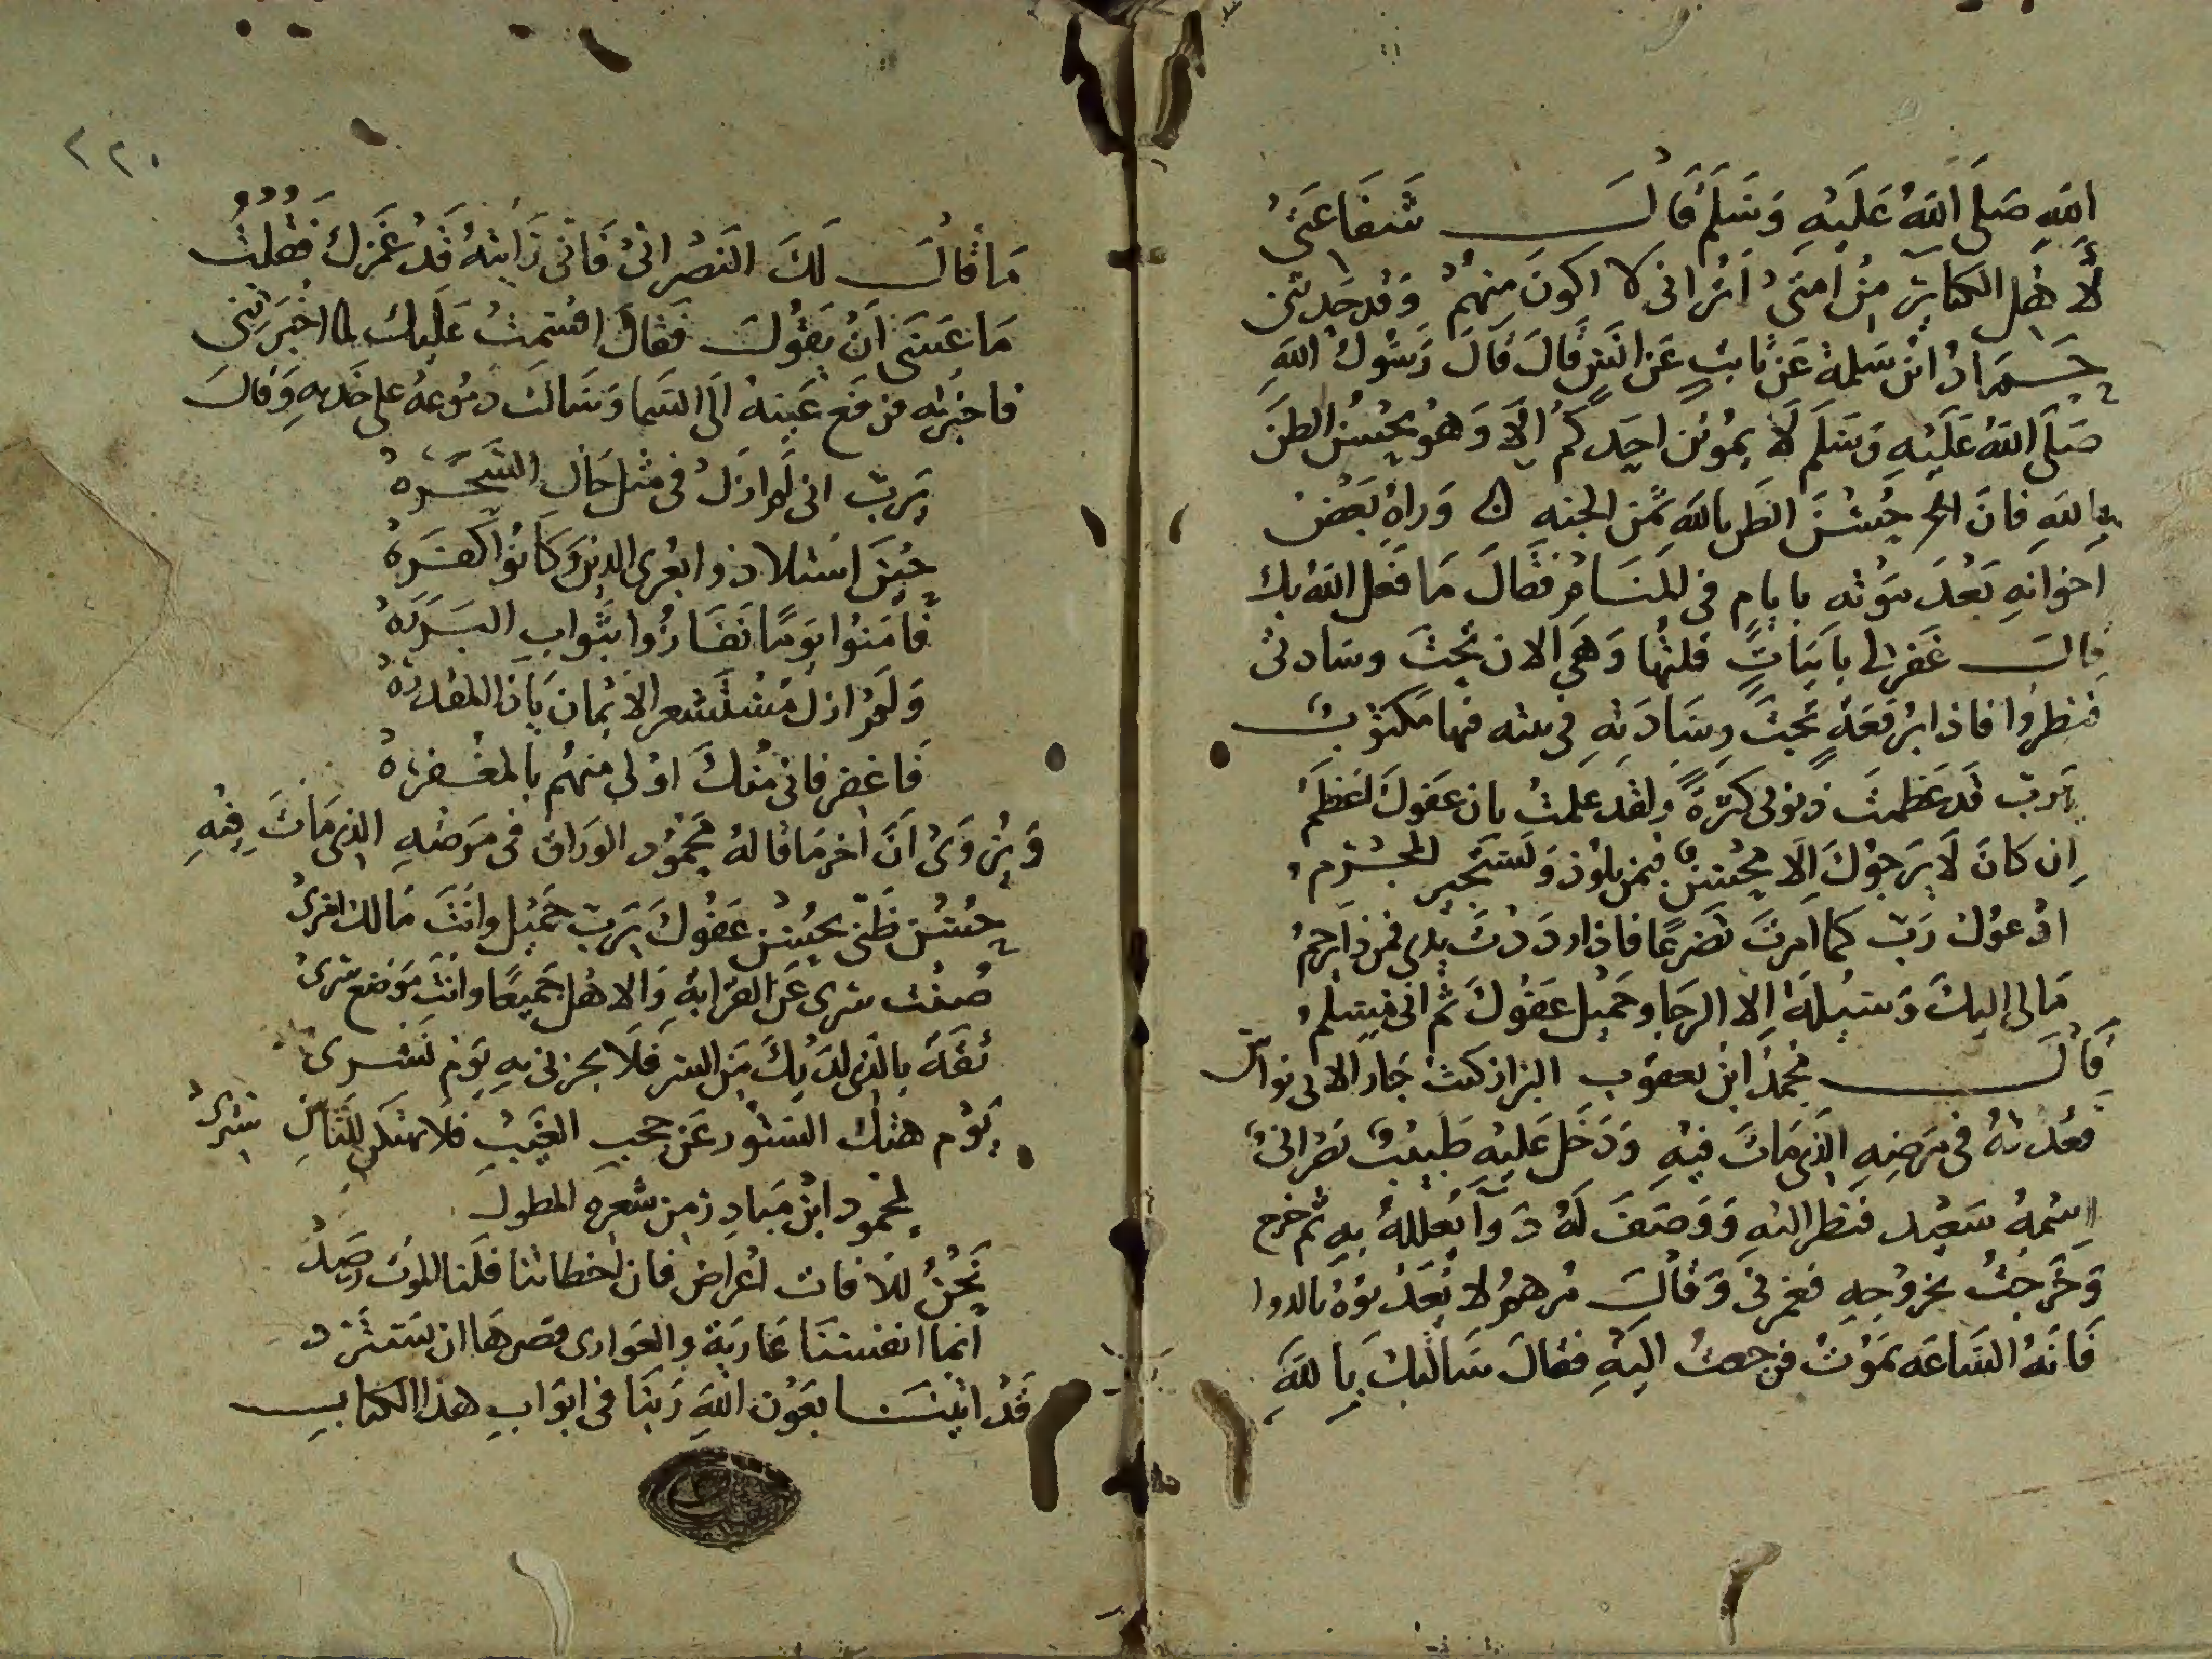 الله صلى الله عليه وسلم قال شفاعتي
لأهل الكبائر من امتي أتراني لا اكون منهم وقد حدثني
حماد ابن سلمة عن ثابت عن انس قال قال رسول الله
صلى الله عليه وسلم لا يموتن احدكم إلا وهو يحسن الظن
بالله فان حسن الظن بالله ثمن الجنه وراه بعض
اخوانه بعد موته بايام في المنام فقال ما فعل الله بك
قال غفر لي بابيات قلتها وهي الان تحت وسادتي
فنظروا فاذا برقعة تحت وسادته في بيته فيها مكتوب
يرب قد عظمت ذنوبي كثرة ولقد علمت بان عفوك اعظم
ان كان لا يرجوك إلا محسن فبمن يلوذ ويستجير المجرم
ادعوك رب كما امرت تضرعا فاذا رددت يدي فمن ذا يرحم
مالي إليك وسيلة إلا الرجا وجميل عفوك ثم اني مسلم
قال محمد ابن يعقوب البزاز كنت جارا لابي نواس
فعدته في مرضه الذي مات فيه ودخل عليه طبيب نصراني
اسمه سعيد فنظر اليه ووصف له دوآ يعلله به ثم خرج
وخرجت بخروجه فغمزني وقال مرهم لا يعذبوه بالدوا
فانه الساعه يموت فرجعت اليه فقال سالتك بالله
٢٢٠
ما قال لك النصراني فاني رايته قد غمزك فقلت
ما عسى أن يقول فقال اقسمت عليك لما اخبرتني
فاخبرته فرفع عينه الى السما وسالت دموعه على خده وقال
يرب اني لم ازل في مثل حال السحره
حين استلاذوا بعرى الدين وكانوا كفره
فامنوا يوما ففازوا بثواب البرره
ولم ازل مستشعر الايمان ياذا المقدره
فاغفر فاني منك اولى منهم بالمغفره
ويروى أن اخر ما قاله محمود الوراق في مرضه الذي مات فيه
حسن ظني بحسن عفوك يرب جميل وانت مالك امري
صنت سري عن القرابة والاهل جميعا وانت موضع سري
ثقة بالذي لديك من الستر فلا تخزني به يوم نشري
يوم هتك الستور عن حجب الغيب فلا تهتكن للناس ستري
لمحمود ابن مبادر من شعره المطول
نحن للافات اغراض فان اخطاتنا فلنا الموت رصد
انما انفسنا عارية والعواري قصرها ان تسترد
قد اتينا بعون الله ربنا في ابواب هذا الكتاب